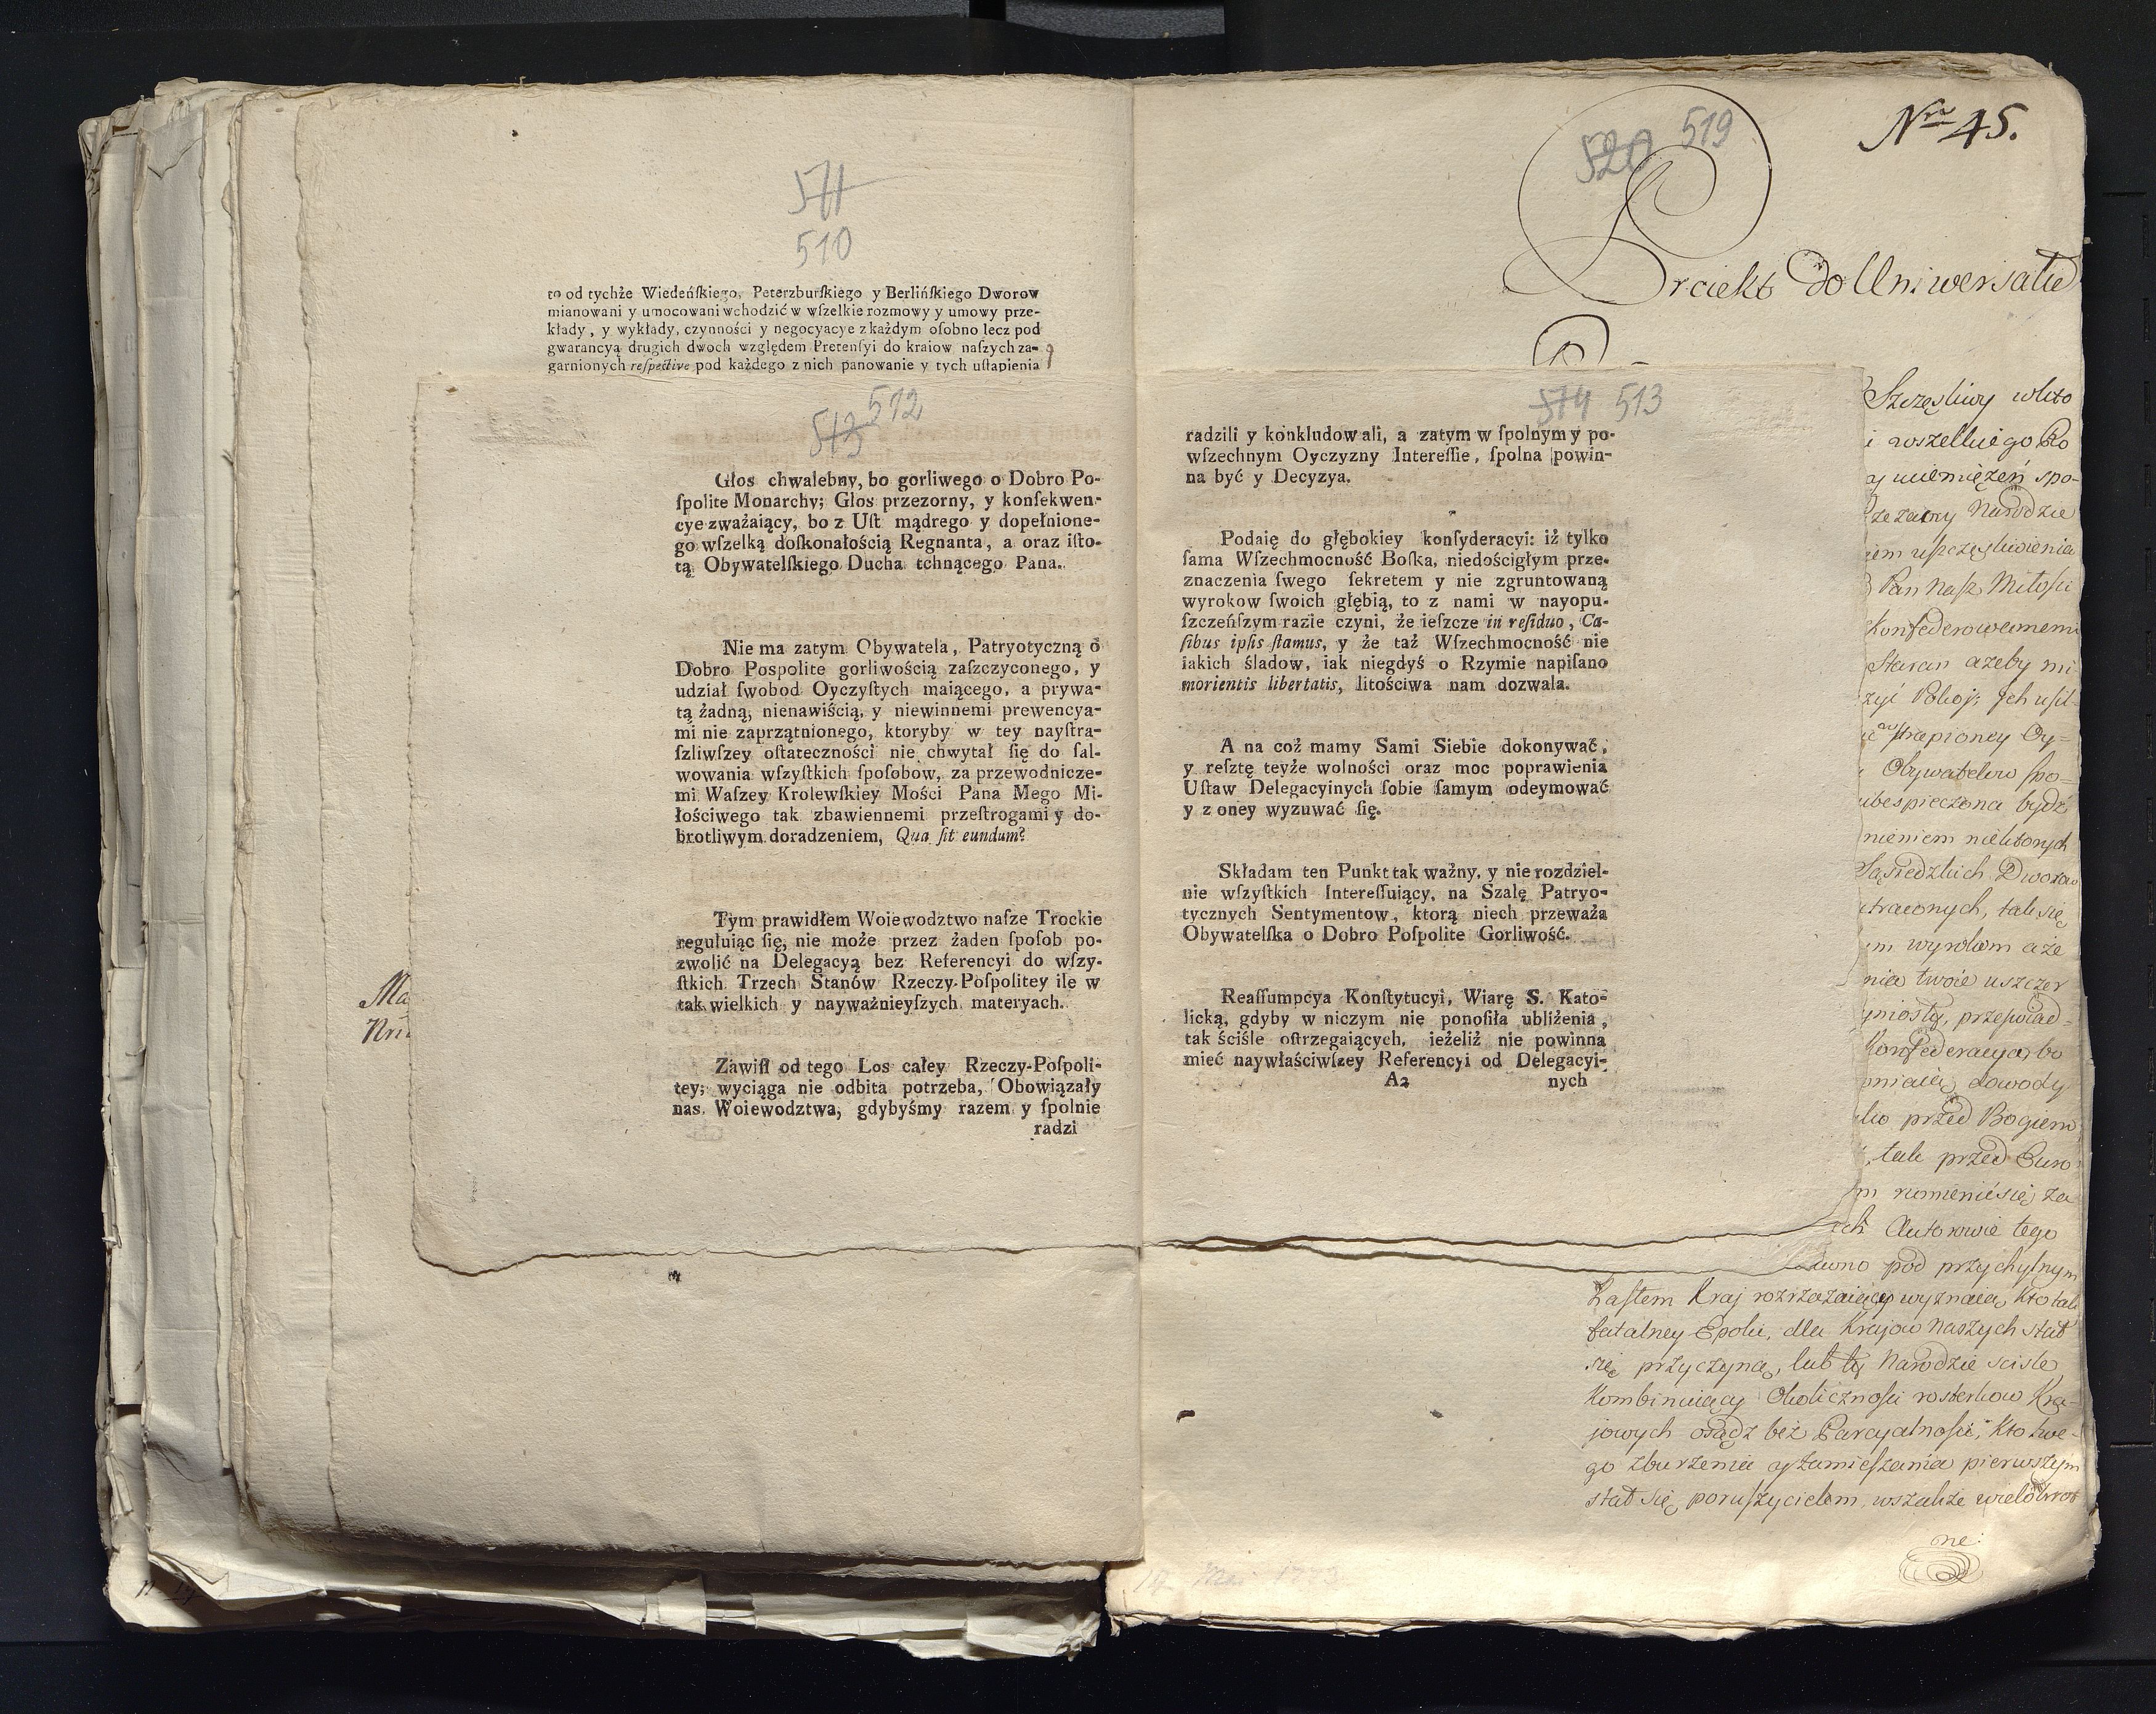 511
510
to od tychże Wiedeńſkiego, Peterzburſkiego y Berlińſkiego Dworow
mianowani y umocowani wchodzić w wſzelkie rozmowy y umowy prze-
kłady, y wykłady, czynności y negocyacye z każdym oſobno lecz pod
gwarancyą drugich dwoch względem Pretenſyi do kraiow naſzych za-
garnionych reſpective pod każdego z nich panowanie y tych uſtąpienia
513 512
Głos chwalebny, bo gorliwego o Dobro Po-
ſpolite Monarchy; Głos przezorny, y konſekwen-
cye zważaiący, bo z Uſt mądrego y dopełnione-
go wſzelką doſkonałością Regnanta, a oraz iſto-
tą Obywatelſkiego Ducha tchnącego Pana.
Nie ma zatym Obywatela, Patryotyczną o
Dobro Pospolite gorliwością zaſzczyconego, y
udział ſwobod Oyczyſtych maiącego, a prywa-
tą żadną, nienawiścią, y niewinnemi prewencya-
mi nie zaprzątnionego, ktoryby w tey nayſtra-
ſzliwſzey oſtateczności nie chwytał ſię do ſal-
wowania wſzyſtkich ſpoſobow, za przewodnicze-
mi Waſzey Krolewſkiey Mości Pana Mego Mi-
łościwego tak zbawiennemi przeſtrogami y do-
brotliwym doradzeniem, Qua ſit eundum?
Tym prawidłem Woiewodztwo naſze Trockie
reguluiąc ſię, nie może przez żaden ſpoſob po-
zwolić na Delegacyą bez Referencyi do wſzy-
ſtkich Trzech Stanów Rzeczy-Poſpolitey ile w
tak wielkich y nayważnieyſzych materyach.
Zawiſł od tego Los całey Rzeczy-Poſpoli-
tey; wyciąga nie odbita potrzeba, Obowiązały
nas Woiewodztwa, gdybyśmy razem y ſpolnie
radzi
Ma
514 513
radzili y konkludowali, a zatym w ſpolnym y po-
wſzechnym Oyczyzny Intereſſie, ſpolna powin-
na być y Decyzya.
Podaię do głębokiey konſyderacyi: iż tylko
ſama Wſzechmocność Boſka, niedościgłym prze-
znaczenia ſwego ſekretem y nie zgruntowaną
wyrokow ſwoich głębią, to z nami w nayopu-
ſzczeńſzym razie czyni, że ieſzcze in reſiduo, Ca-
ſibus ipſis ſtamus, y że taż Wſzechmocność nie
iakich śladow, iak niegdyś o Rzymie napiſano
morientis libertatis, litościwa nam dozwala.
A na coż mamy Sami Siebie dokonywać,
y reſztę teyże wolności oraz moc poprawienia
Uſtaw Delegacyinych ſobie ſamym odeymować
y z oney wyzuwać ſię.
Składam ten Punkt tak ważny, y nie rozdziel-
nie wſzyſtkich Intereſſuiący, na Szalę Patryo-
tycznych Sentymentow, ktorą niech przeważa
Obywatelſka o Dobro Poſpolite Gorliwość.
Reaſſumpcya Konſtytucyi, Wiarę S. Kato-
licką, gdyby w niczym nie ponoſiła ubliżenia,
tak ściśle oſtrzegaiących, ieżeliż nie powinna
mieć naywłaściwſzey Referencyi od Delegacyi-
A2 nych
520 519
Nro 45.
Proiekt do Uniwersału
Szczęsliwy w
i wszelkiego
spo-
Narodzie
uszczęsliwienia
Pan Nasz Miłości
Konfederowanemi
Staran azeby
Pokoj; Ich usil-
Oy-
Obywatelow spo-
ubespieczona bydź
nieniem niektorych
Sąsiedzkich Dworow
traconych, tak się
wyrokom aże
nia twoie uszczer
przeswiad-
Konfederacya, bo
dowody
przed Bogiem
, tak przed Euro
rumienić się za
Autorowie tego
pod przychylnym
hastem Kraj wyznaią, Kto tak
fatalney Epoki, dla Krajow Naszych stał
się przyczyną, lub ty Narodzie sciśle
Kombinuiący Okoliczności rosterkow Kra-
jowych osądz bez Parcyalności, Kto twe-
go zburzenia y zamieszania pierwszym
stał się poruszycielem, wszakże
ne:
Mai 1773